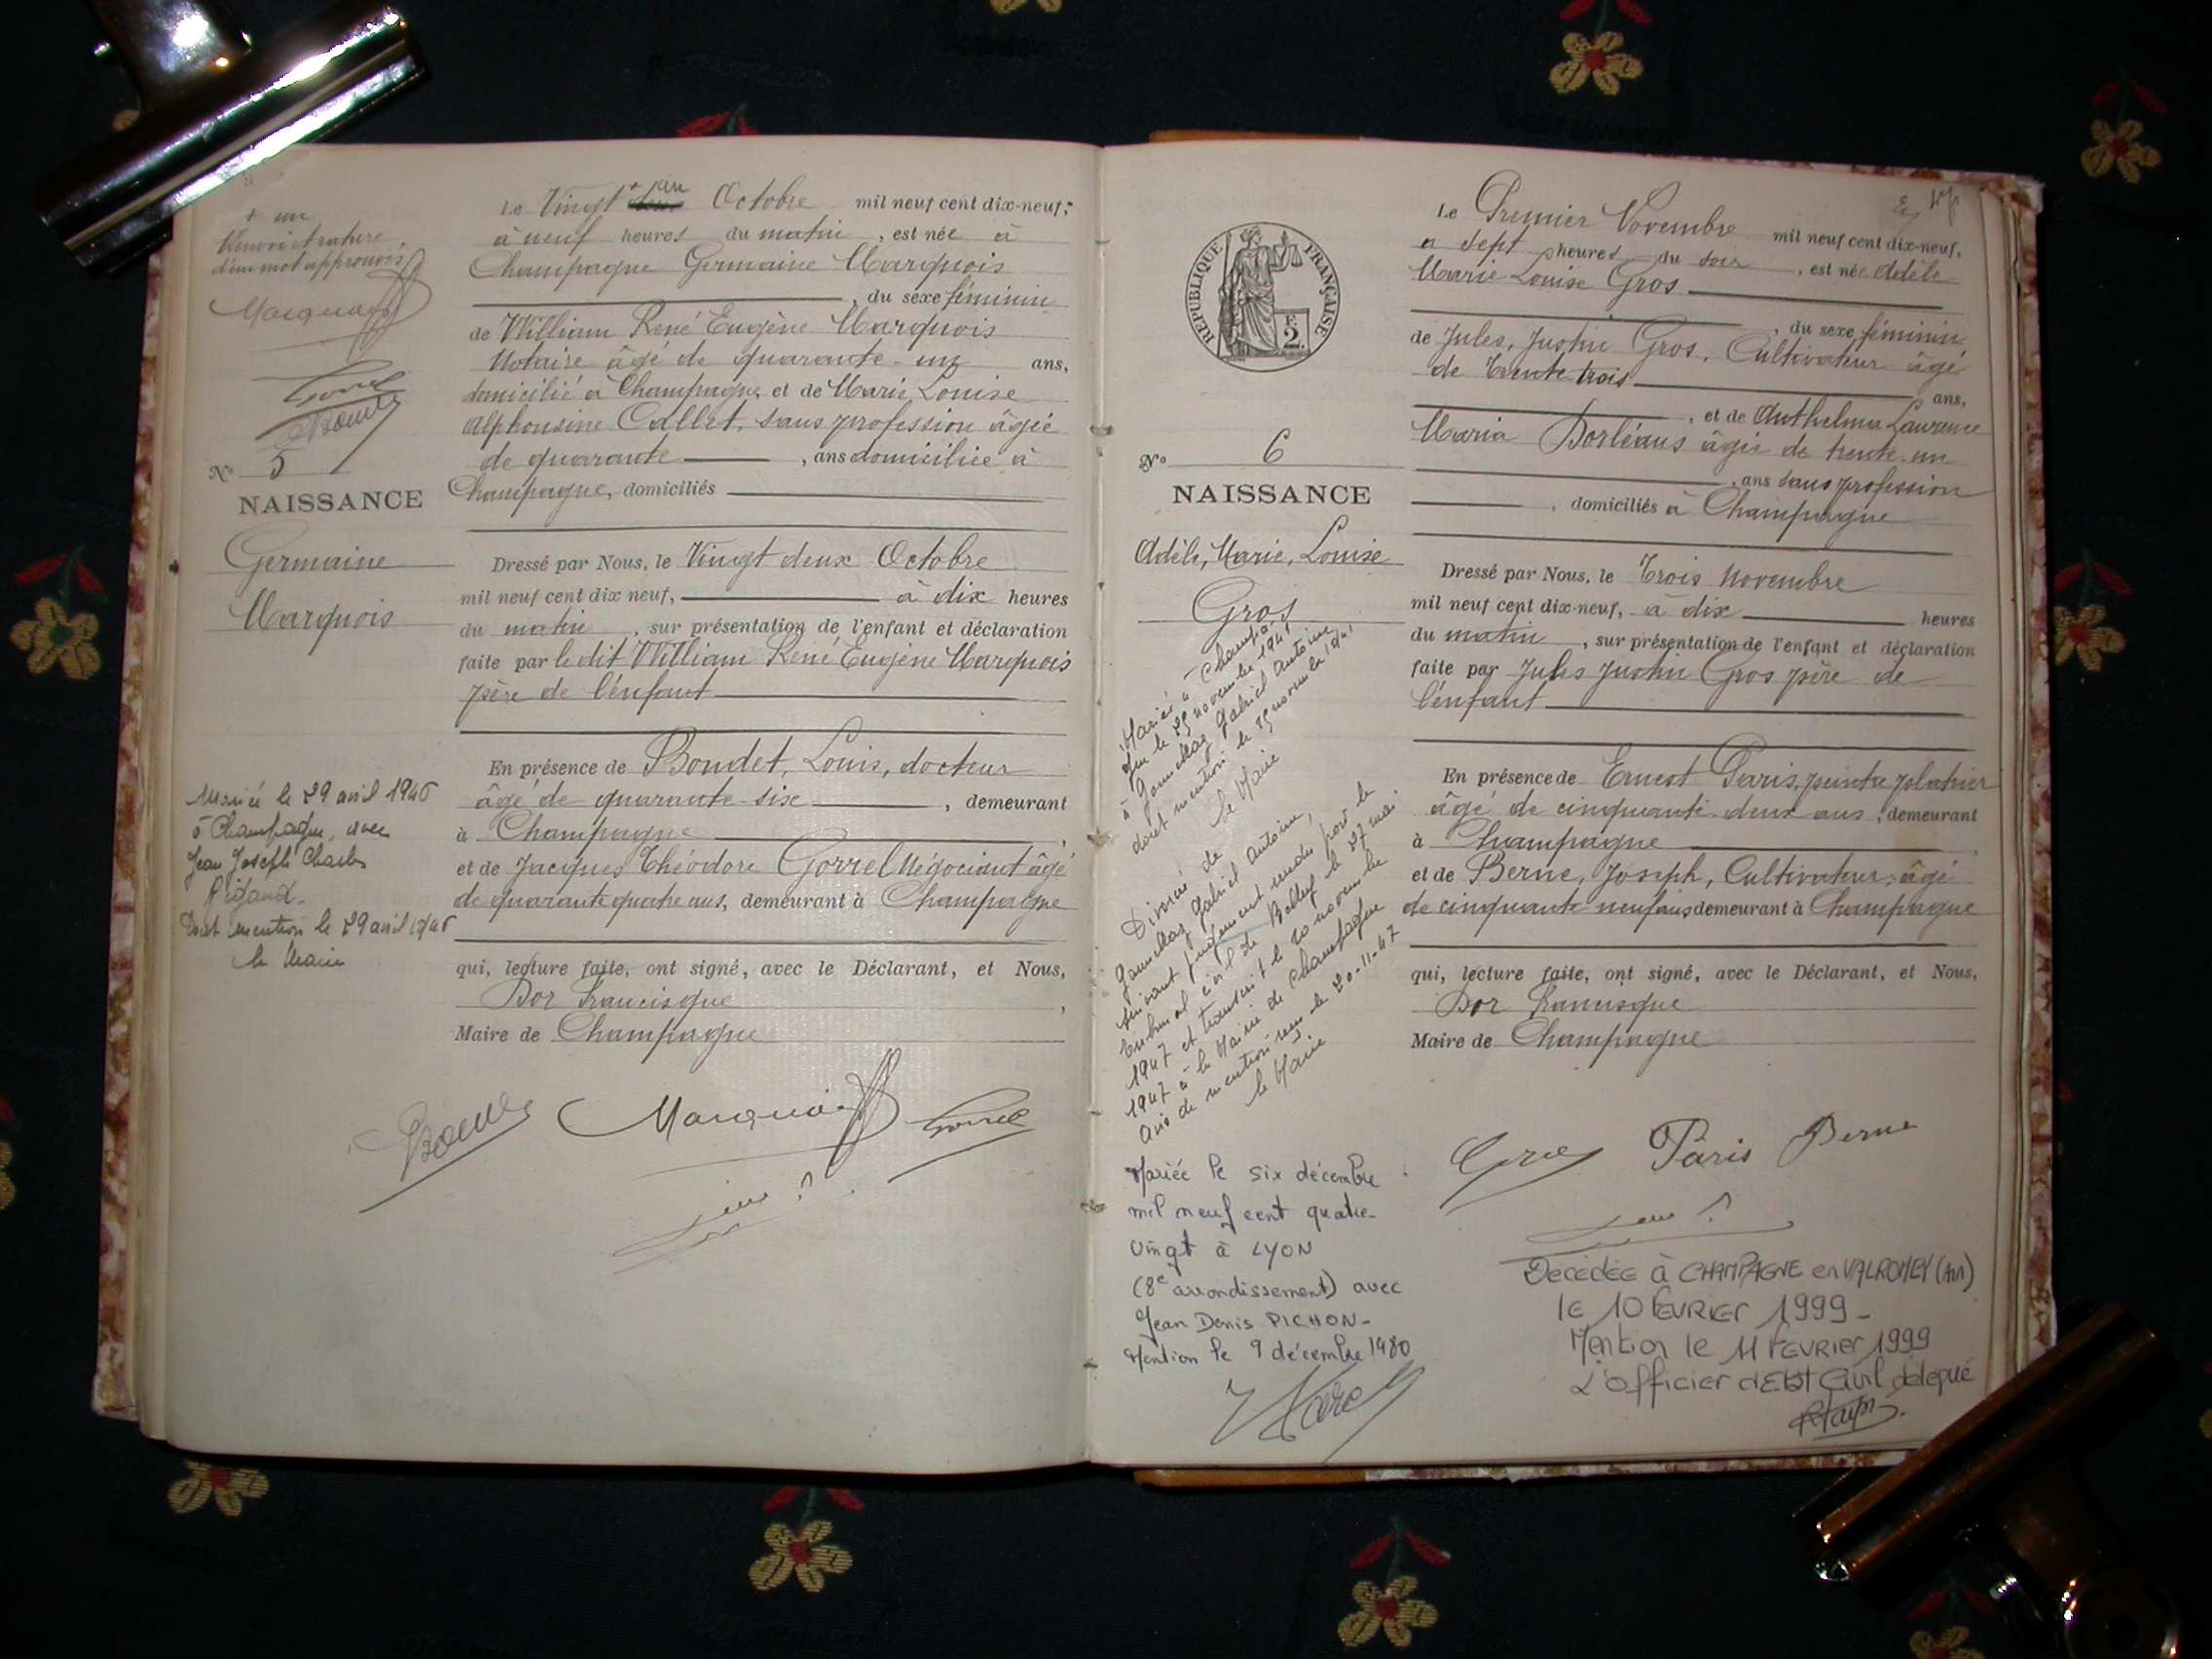 + un
d'un mot approuvés
Marquois
Gorrel
Boudet
N° 5
NAISSANCE
Germaine
Marquois
Mariée le 29 avril 1946
à Champagne, avec
Jean Joseph Charles
Rigaud.
Dont mention le 29 avril 1946
le Maire
Le Vingt + un Octobre mil neuf cent dix-neuf,
à neuf heures du matin, est née à
Champagne Germaine Marquois
, du sexe féminin
de William René Eugène Marquois
Notaire âgé de quarante-un ans,
domicilié à Champagne et de Marie Louise
Alphonsine Callet, sans profession âgée
de quarante , ans domiciliée à
Champagne, domiciliés
Dressé par Nous, le Vingt deux Octobre
mil neuf cent dix neuf, à dix heures
du matin, sur présentation de l'enfant et déclaration
faite par le dit William René Eugène Marquois
père de l'enfant
En présence de Boudet, Louis, docteur
âgé de quarante-six , demeurant
à Champagne ,
et de Jacques Théodore Gorrel Négociant âgé
de quarante quatre ans, demeurant à Champagne
qui, lecture faite, ont signé, avec le Déclarant, et Nous,
Dor Francisque ,
Maire de Champagne
Boudet Marquois Gorrel
REPUBLIQUE FRANÇAISE
F.
2.
N° 6
NAISSANCE
Adèle, Marie, Louise
Gros
Mariée à Champagne
le 29 novembre 1941
à Gabriel Antoine
dont mention le 29 novembre 1941
le Maire
Divorcée de
Gabriel Antoine,
suivant jugement rendu par le
tribunal civil de Belley le 27 mai
1947 et transcrit le 20 novembre
1947 à la Mairie de Champagne
avis de mention reçu le 20-11-47
le Maire
Mariée le six décembre
mil neuf cent quatre-
vingt à LYON
(8e arrondissement) avec
Jean Denis PICHON-
Mention le 9 décembre 1980
Le Premier Novembre mil neuf cent dix-neuf,
à sept heures du soir , est née Adèle
Marie Louise Gros
, du sexe féminin
de Jules, Justin Gros, Cultivateur âgé
de trente trois ans,
, et de Anthelma Laurence
Maria Dorléans âgée de trente-un
, ans sans profession
, domiciliés à Champagne
Dressé par Nous, le Trois Novembre
mil neuf cent dix-neuf, à dix heures
du matin , sur présentation de l'enfant et déclaration
faite par Jules Justin Gros père de
l'enfant
En présence de Ernest Paris, peintre plâtrier
âgé de cinquante-deux ans, demeurant
à Champagne
et de Berne, Joseph, Cultivateur, âgé
de cinquante-neuf ans demeurant à Champagne
qui, lecture faite, ont signé, avec le Déclarant, et Nous,
Dor Francisque
Maire de Champagne
Gros Pâris Berne
Décédée à CHAMPAGNE en VALROMEY (Ain)
le 10 FEVRIER 1999-
Mention le 11 FEVRIER 1999
L'officier d'Etat Civil délégué